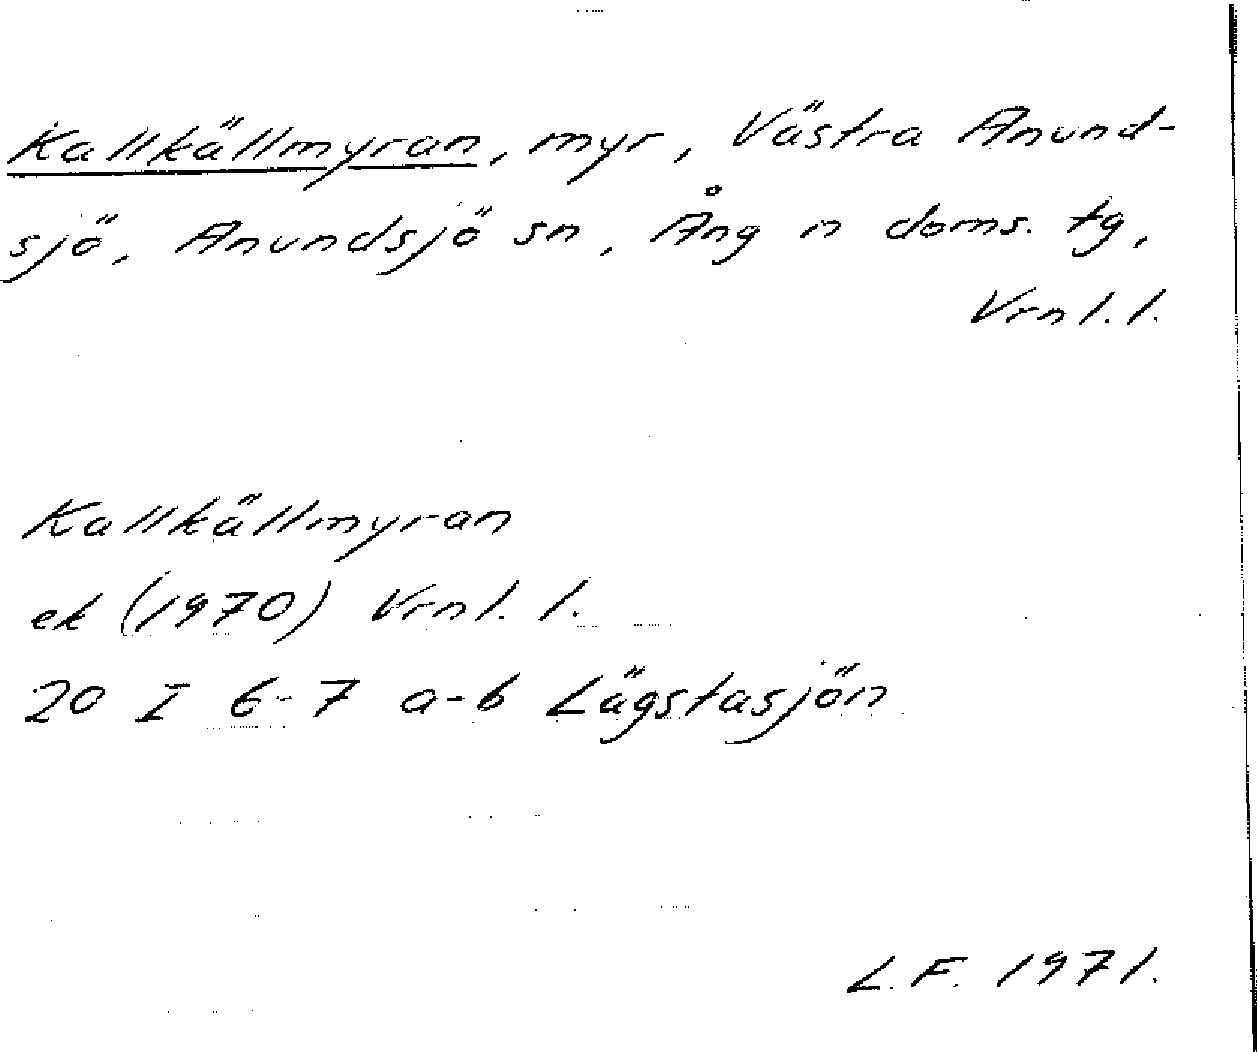 Kallkällmyran, myr, Västra Anund-
sjö, Anundsjö sn, Ång n doms. tg,
Vrnl. l.
Kallkällmyran
ek (1970) Vrnl. l.
20 I 6-7 a-b Lägstasjön
L.F. 1971.